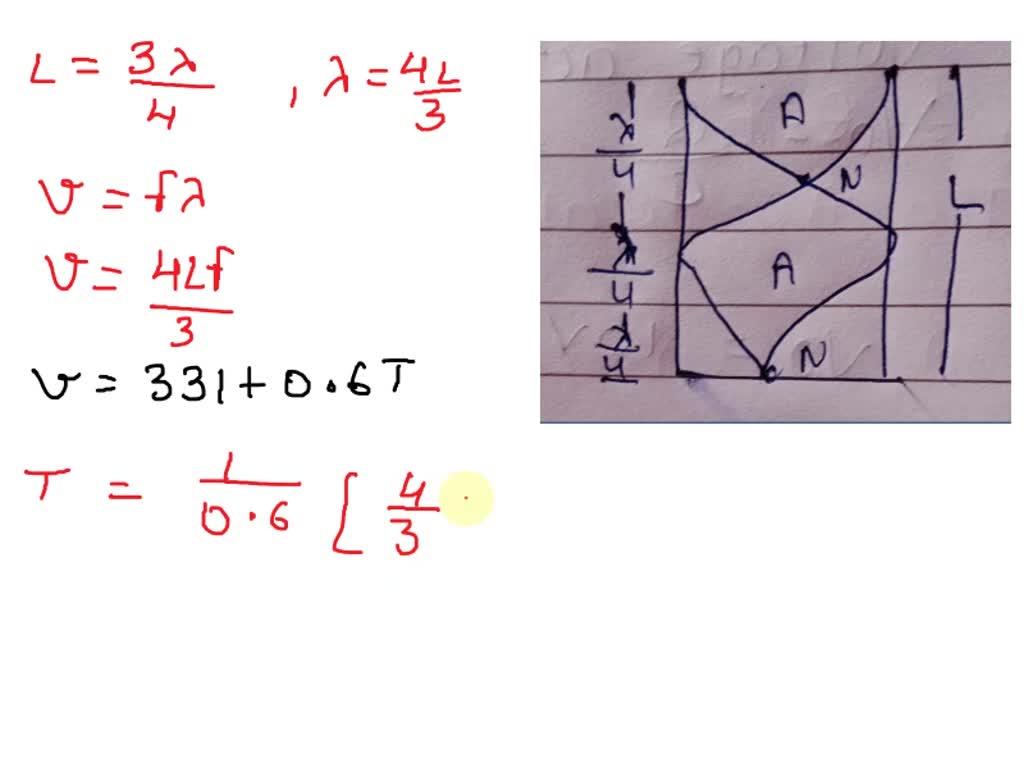 L = 3λ/4 , λ = 4L/3
v = fλ
v = 4Lf/3
v = 331 + 0.6T
T = 1/0.6 [ 4/3
λ/4
A
N
λ/4
L
A
λ/4
N